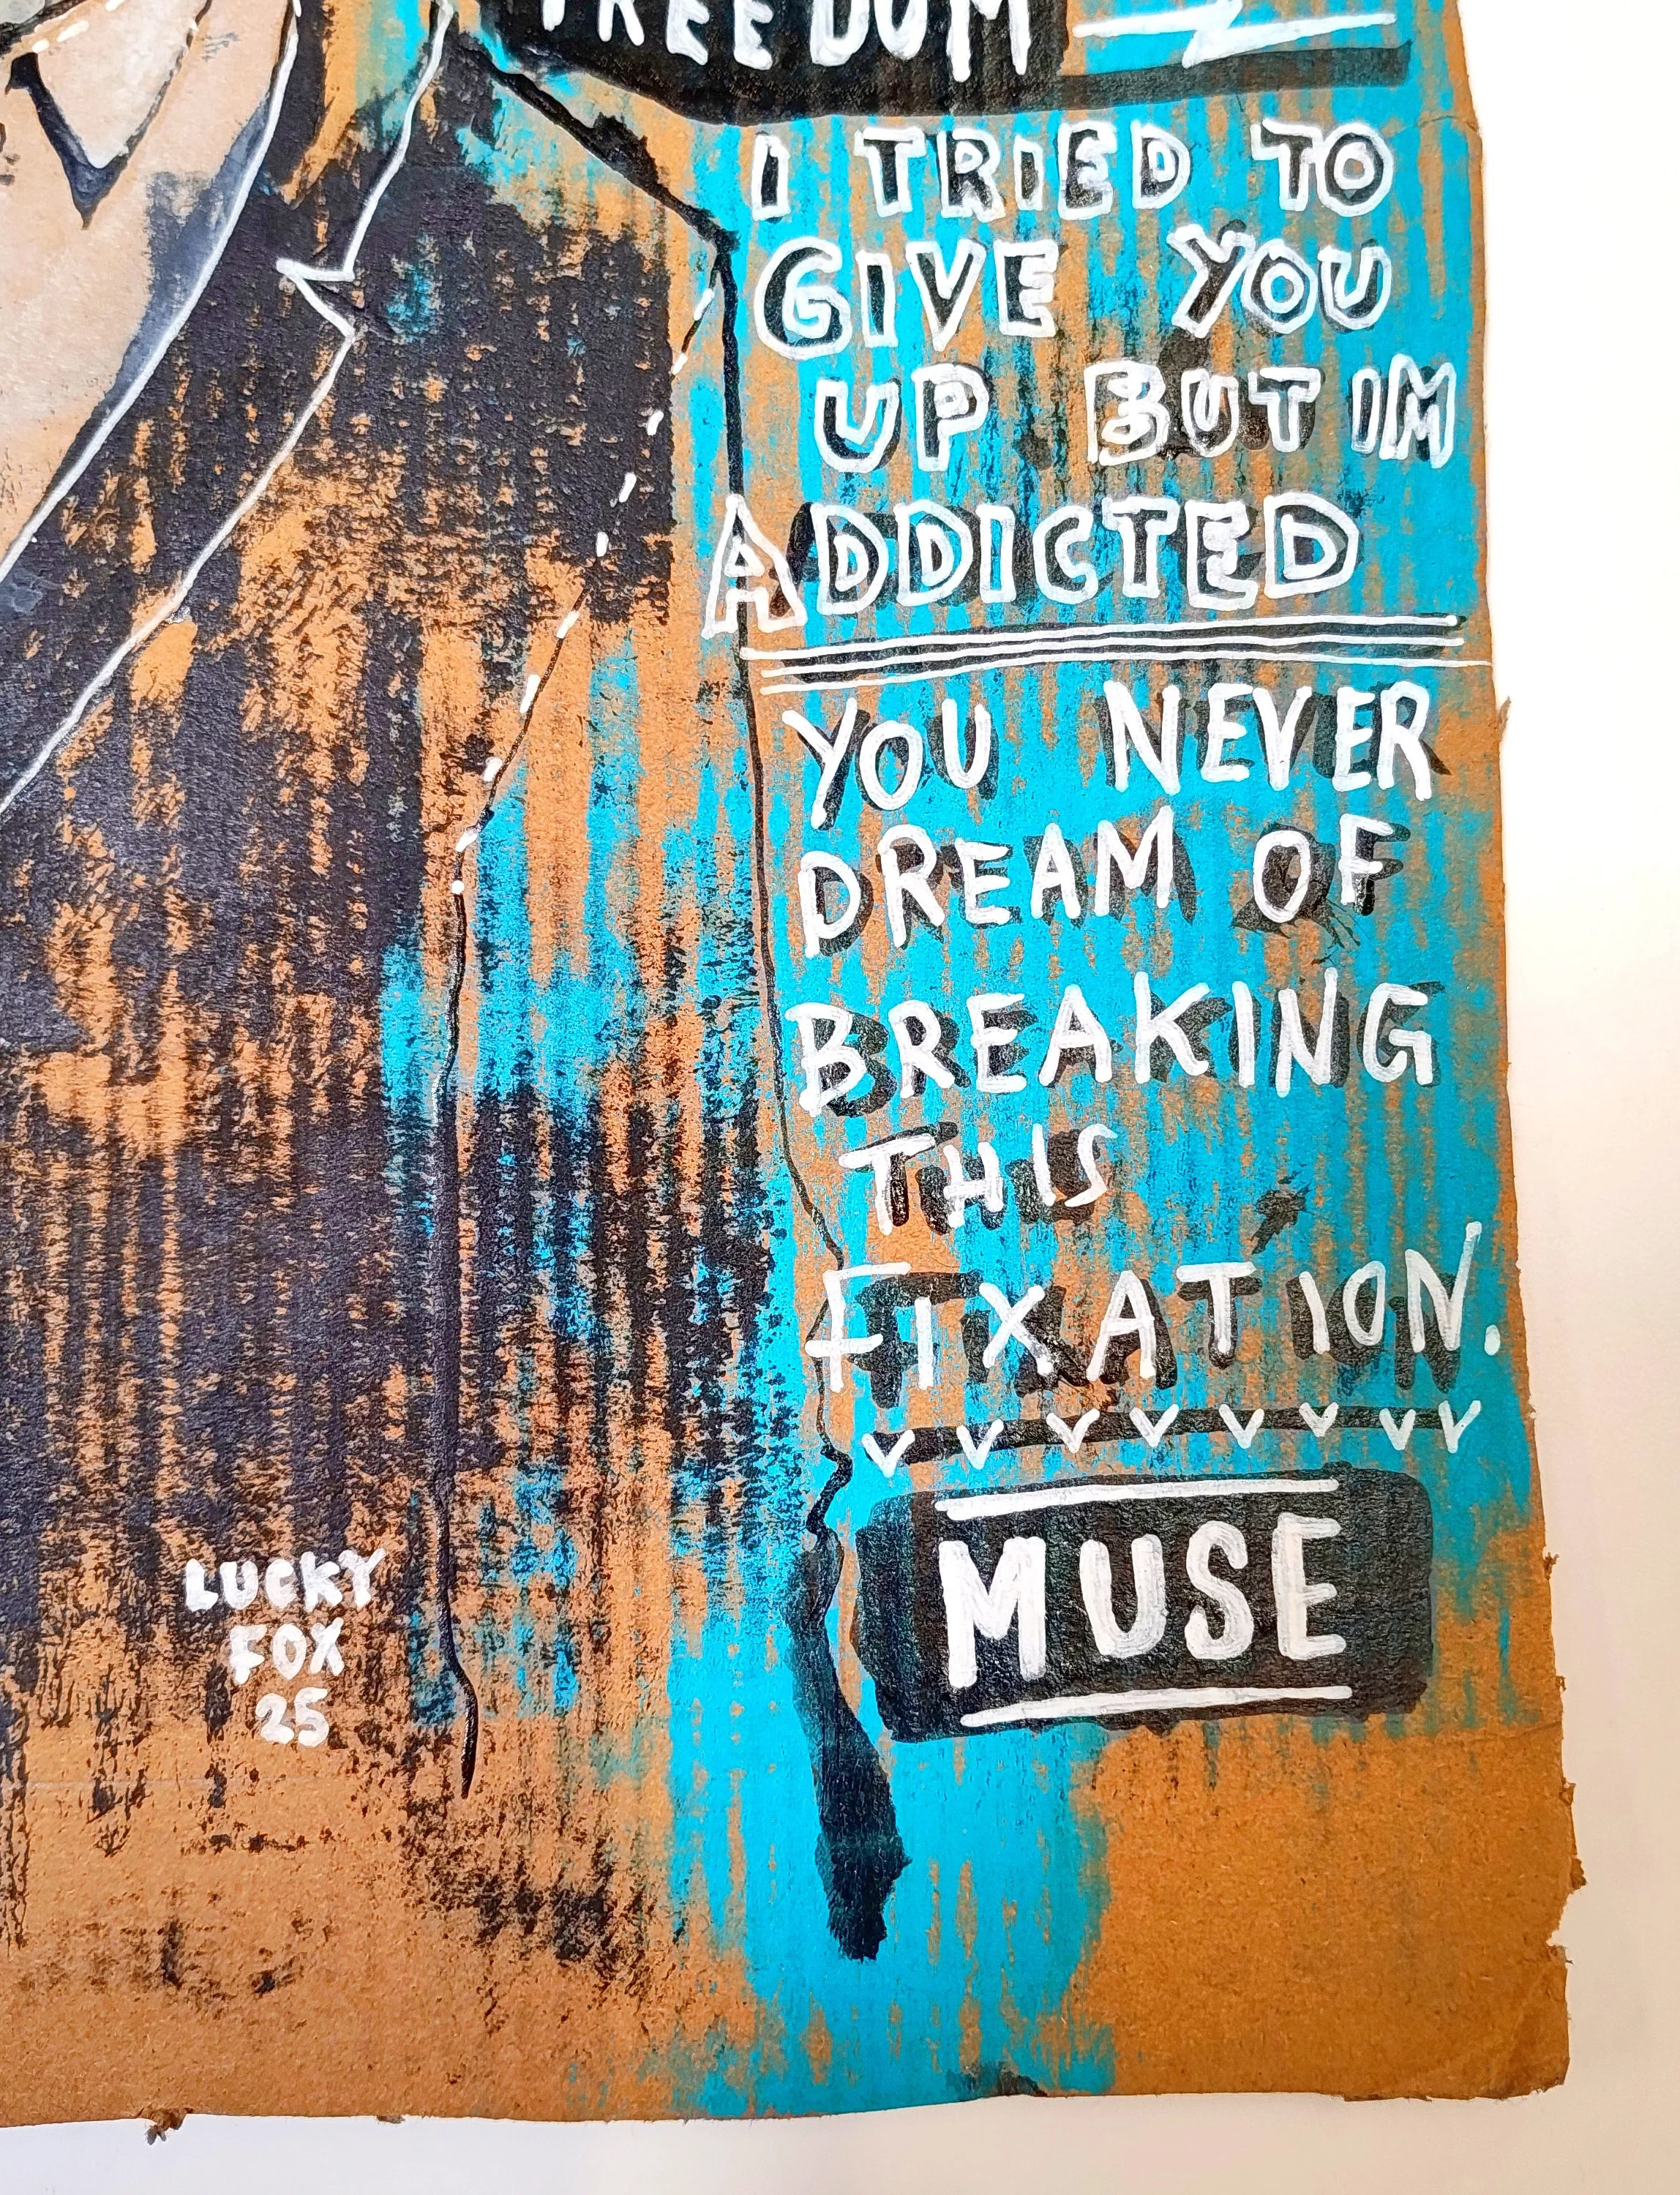 FREEDOM
I TRIED TO
GIVE YOU
UP BUT IM
ADDICTED
YOU NEVER
DREAM OF
BREAKING
THIS
FIXATION.
MUSE
LUCKY
FOX
25